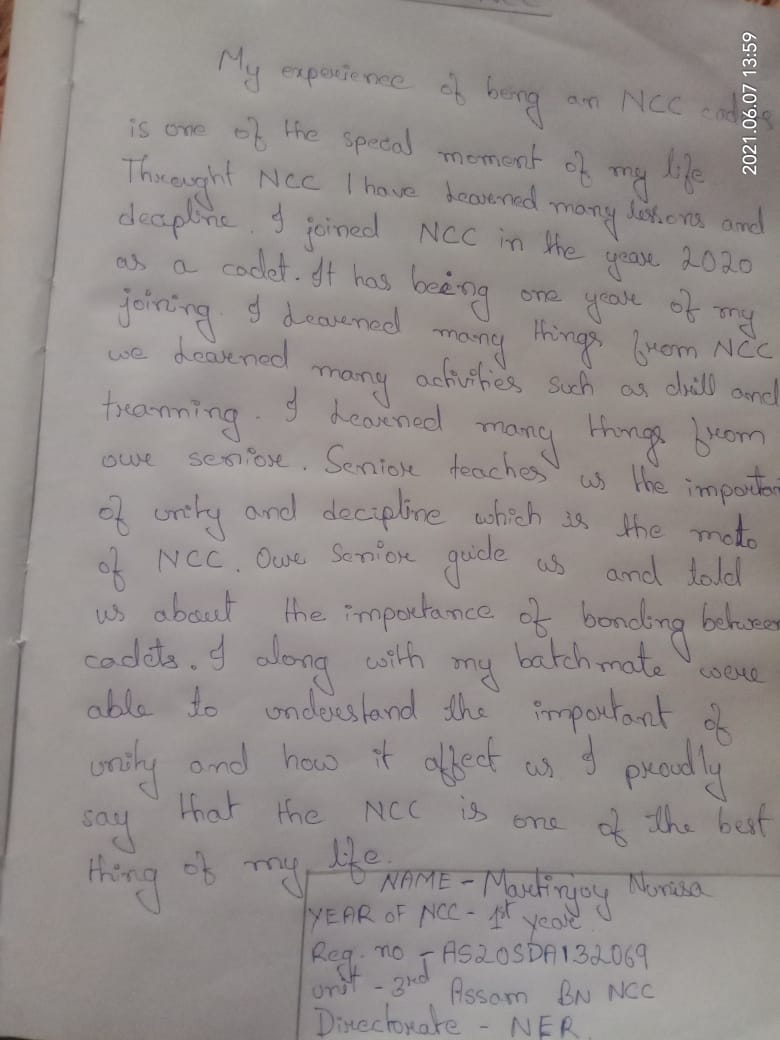 My experience of being an NCC cadets
is one of the specal moment of my life
Throught NCC I have learned many lissons and
decapline. I joined NCC in the year 2020
as a cadet. It has being one year of my
joining. I learned many things from NCC
we learned many activities such as drill and
tranning. I learned many things from
owr senior. Senior teaches us the importan
of unity and decipline which is the moto
of NCC. Owr Senior guide us and told
us about the importance of bonding between
cadets. I along with my batchmate were
able to understand the important of
unity and how it affect us I proudly
say that the NCC is one of the best
thing of my life.
NAME - Martinjoy Nunisa
YEAR OF NCC - 1st year
Reg. no - AS20SDA132069
Unit - 3rd Assam BN NCC
Directorate - NER
2021.06.07 13:59